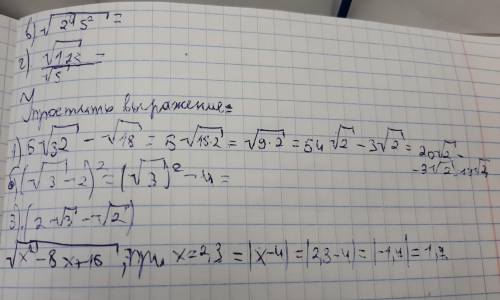 в) √2⁴ 5² =
г) √125 =
√5
Упростить выражение:
1) 5√32 - √18 = 5√15·2 = √9·2 = 54√2 - 3√2 = 20√2 -
- 3√2 = 17√2
2) (√3 - 2)² = (√3)² - 4 =
3. (2 - √3 - √2)
√x² - 8x + 16, при x = 2,3 = |x-4| = |2,3-4| = |-1,7| = 1,7